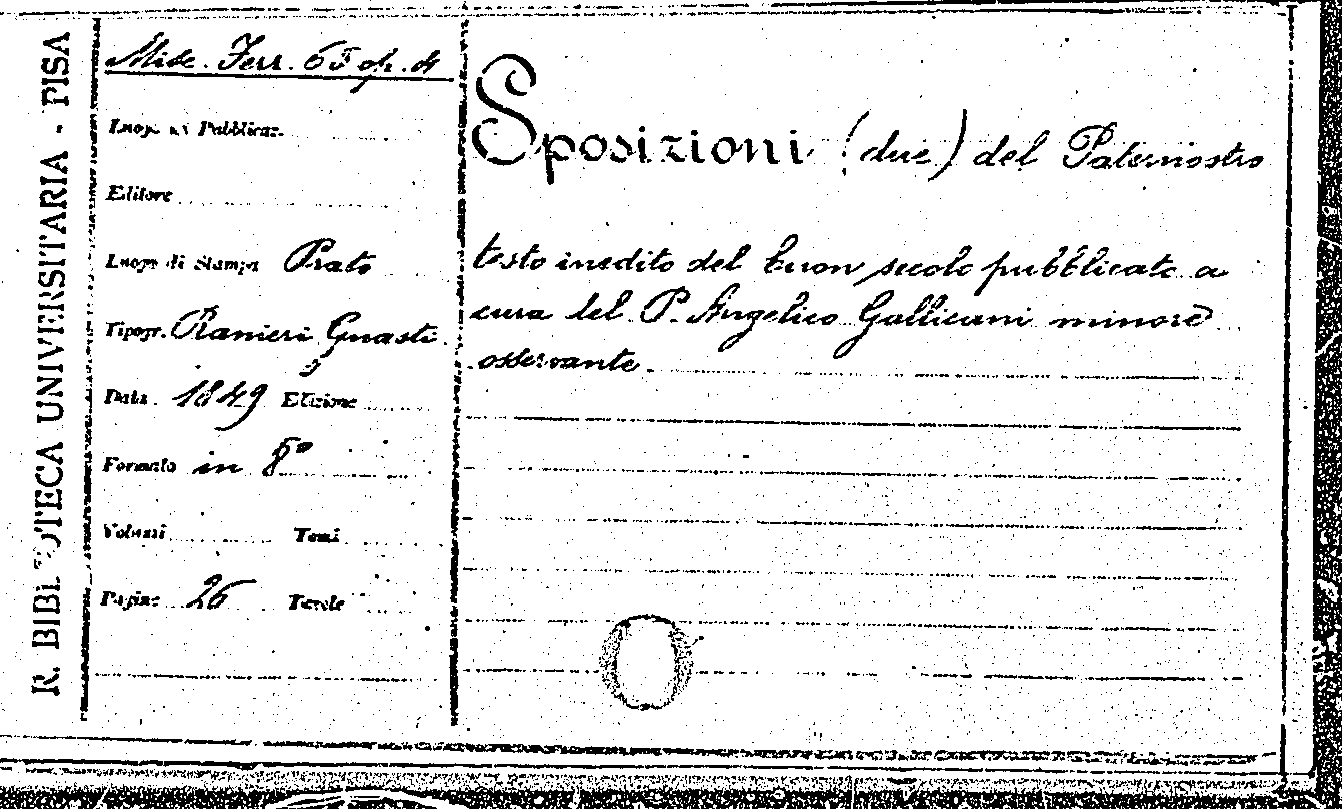 R. BIBLIOTECA UNIVERSITARIA - PISA
Misc. Ferr. 65 op. 4
Luogo di Pubblicaz.
Editore
Luogo di Stampa Prato
Tipogr. Ranieri Guasti
Data 1849 Edizione
Formato in 8°
Volumi Tomi
Pagine 26 Tavole
Sposizioni (due) del Paternostro
testo inedito del buon secolo pubblicato a
cura del P. Angelico Gallicani minore
osservante.